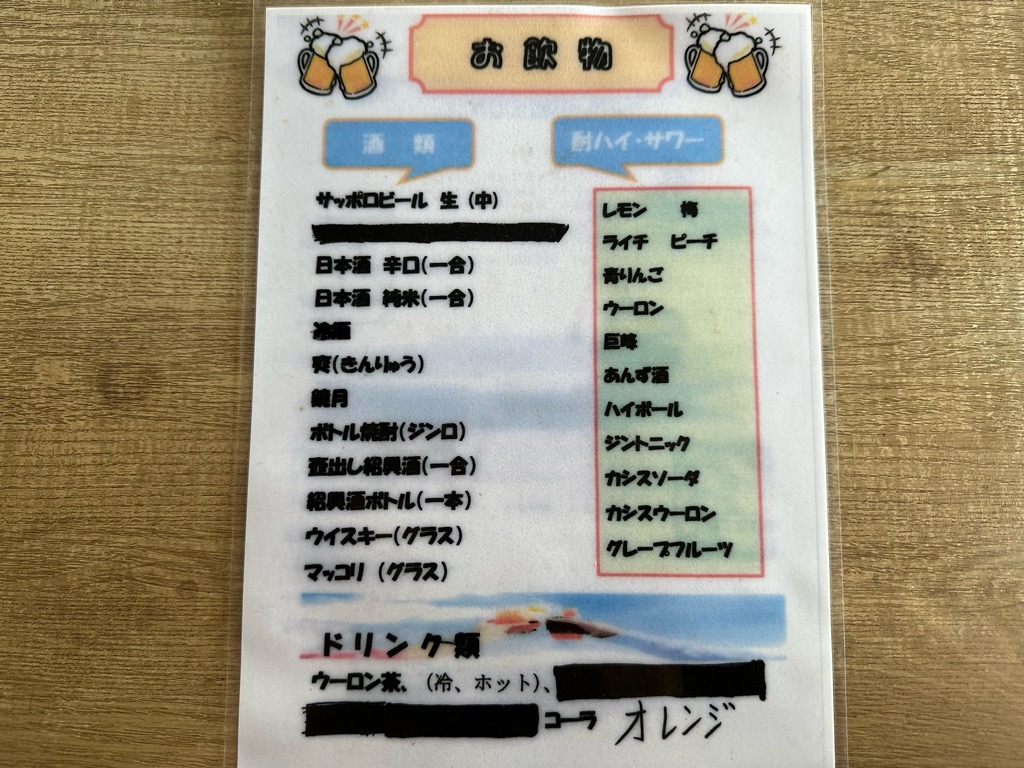 お飲物
酒類
サッポロビール 生 (中)
日本酒 辛口(一合)
日本酒 純米(一合)
冷酒
爽(きんりゅう)
鏡月
ボトル焼酎(ジンロ)
壺出し紹興酒(一合)
紹興酒ボトル(一本)
ウイスキー(グラス)
マッコリ (グラス)
酎ハイ・サワー
レモン 梅
ライチ ピーチ
青りんご
ウーロン
巨峰
あんず酒
ハイボール
ジントニック
カシスソーダ
カシスウーロン
グレープフルーツ
ドリンク類
ウーロン茶、(冷、ホット)、
コーラ オレンジ